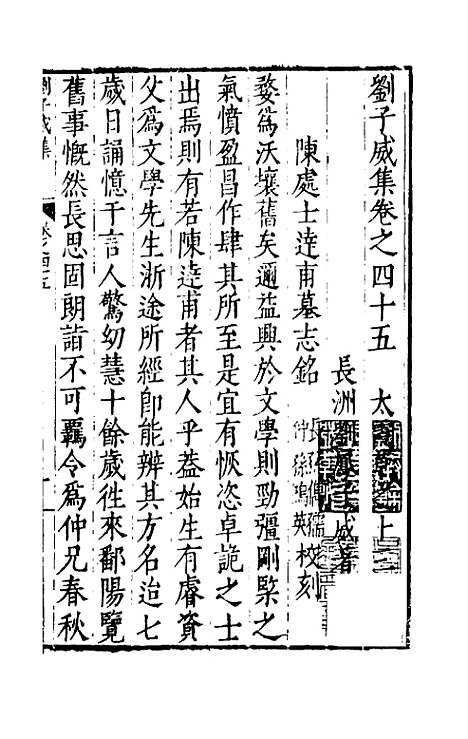 劉子威集卷之四十五　太　上
長洲　威著
陳處士達甫墓志銘　仲孫鳴英校刻
婺為沃壤舊矣邇益興於文學則勁彊剛堅之
氣憤盈昌作肆其所至是宜有恢恣卓詭之士
出焉則有若陳達甫者其人乎葢始生有睿資
父為文學先生浙途所經卽能辨其方名迨七
歲日誦憶千言人驚幼慧十餘歲徃來鄱陽覽
舊事慨然長思固朗詣不可羈令為仲兄春秋
劉子威集